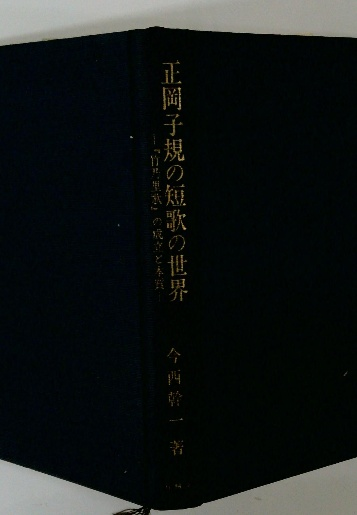 正岡子規の短歌の世界
―『竹乃里歌』の成立と本質―
今西幹一 著